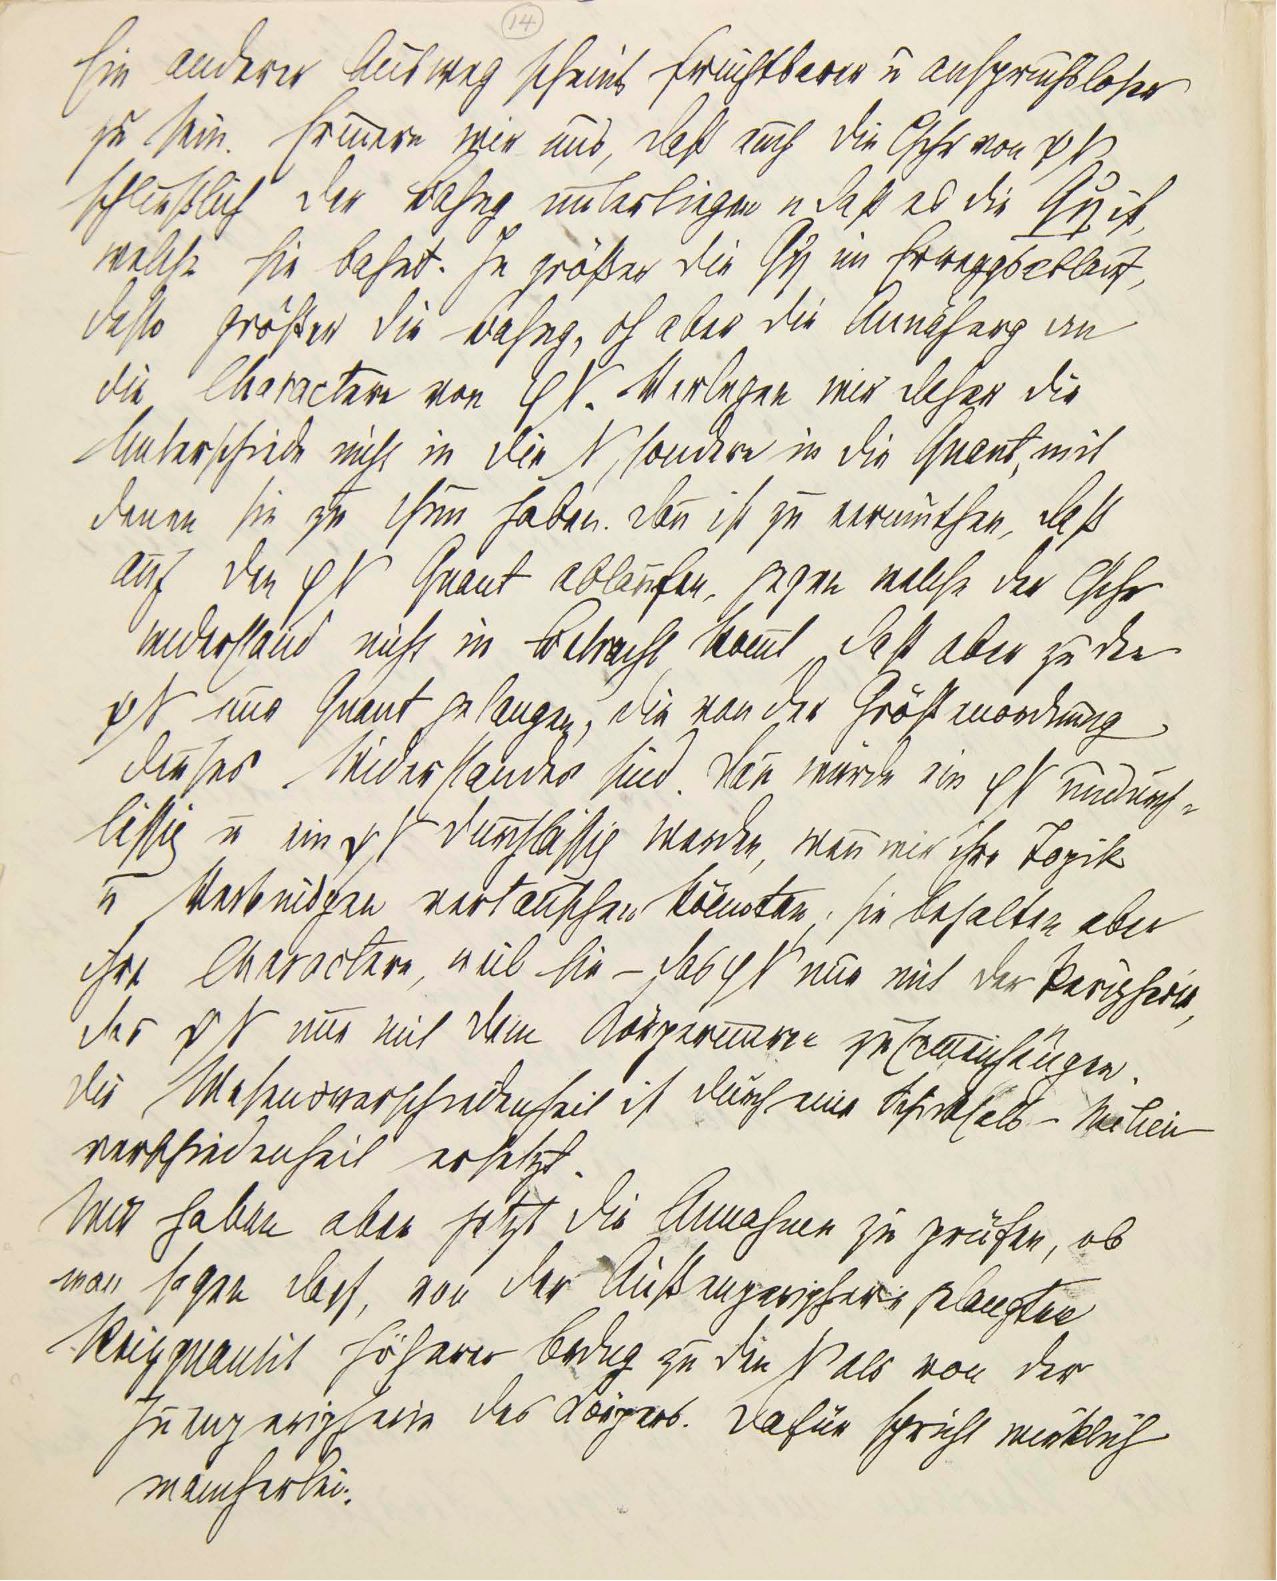 14
Ein anderer Ausweg scheint fruchtbarer u anspruchsloser
zu sein. Erinnern wir uns, daß auch die Cschr von ψ N
schließlich der Bahng unterliegen u daß es die Qη ist,
welche sie bahnt. Je größer die Qη im Erreggsablauf,
desto größer die Bahng, dh aber die Annäherg an
die Charactere von φ N. Verlegen wir daher die
Unterschiede nicht in die N, sondern in die Quant, mit
denen sie zu thun haben. Dan̄ ist zu vermuthen, daß
auf den φ N Quant ablaufen, gegen welche der Cschr
widerstand nicht in Betracht kom̄t, daß aber zu den
ψ N nur Quant gelangen, die von der Größenordnung
dieses Widerstandes sind. Dan̄ würde ein φ N undurch-
lässig u ein ψ N durchlässig werden, wen̄ wir ihre Topik
u Verbindgen vertauschen kön̄ten; sie behalten aber
ihre Charactere, weil sie – das φ N nur mit der Peripherie,
das ψ N nur mit dem Körperin̄ern zusam̄enhängen.
Die Wesensverschiedenheit ist durch eine Schicksals-Milieu
verschiedenheit ersetzt.
Wir haben aber jetzt die Annahme zu prüfen, ob
man sagen darf, von der Außenperipherie gelangten
Reizquantit höherer Ordng zu den N als von der
In̄enperipherie des Körpers. Dafür spricht wirklich
mancherlei.